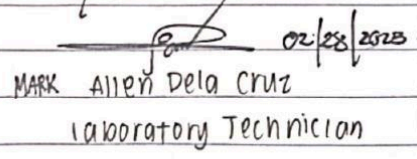 02/28/2023
MARK Allen Dela Cruz
laboratory Technician